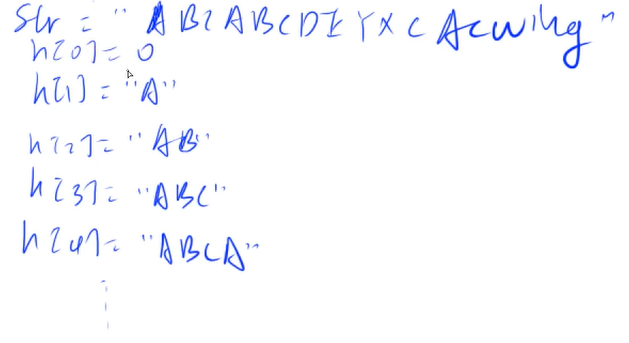 Str = "ABCABCDEYXCAcwing"
h[0] = 0
h[1] = "A"
h[2] = "AB"
h[3] = "ABC"
h[4] = "ABCA"